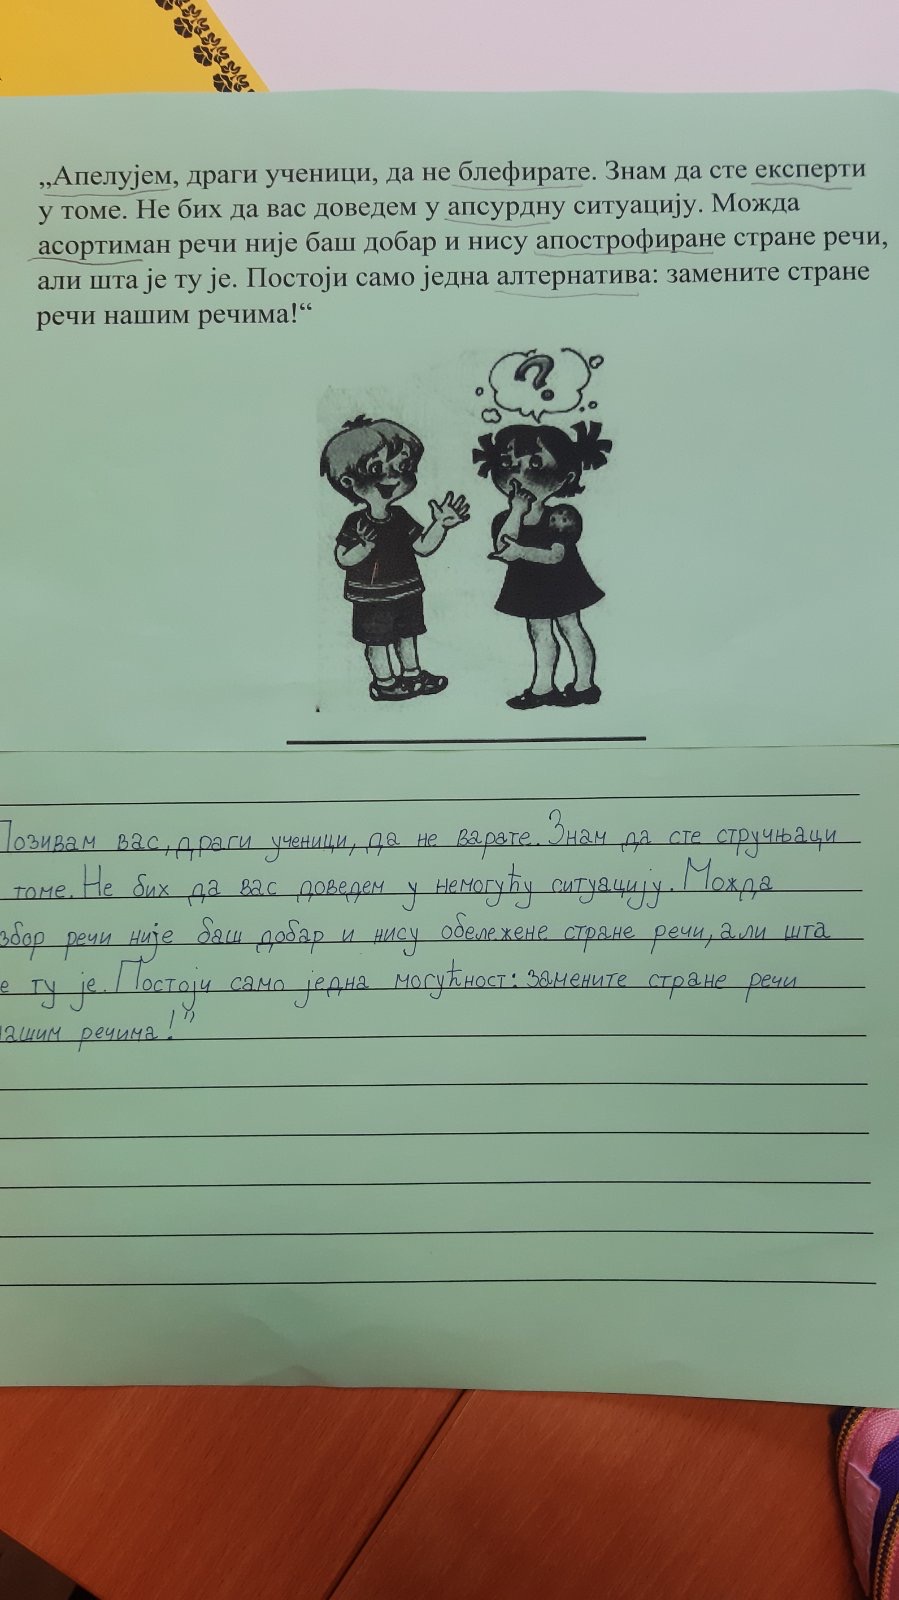 „Апелујем, драги ученици, да не блефирате. Знам да сте експерти
у томе. Не бих да вас доведем у апсурдну ситуацију. Можда
асортиман речи није баш добар и нису апострофиране стране речи,
али шта је ту је. Постоји само једна алтернатива: замените стране
речи нашим речима!“
?
Позивам вас, драги ученици, да не варате. Знам да сте стручњаци
томе. Не бих да вас доведем у немогућу ситуацију. Можда
збор речи није баш добар и нису обележене стране речи, али шта
е ту је. Постоји само једна могућност: замените стране речи
нашим речима!”